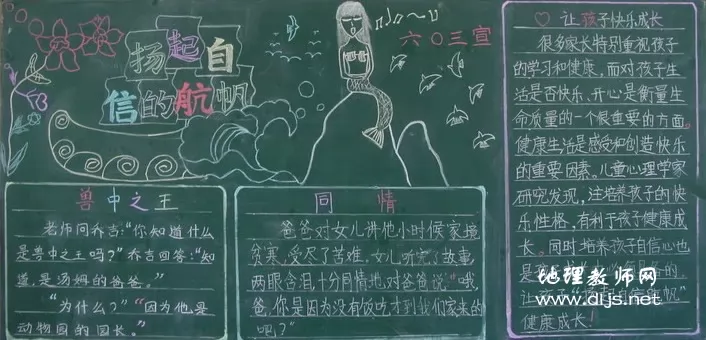 扬起自
信的航帆
六〇三宣
兽中之王
老师问乔吉:“你知道什么
是兽中之王吗?”乔吉回答:“知
道,是汤姆的爸爸。”
“为什么?”“因为他是
动物园的园长。”
同情
爸爸对女儿讲他小时候家境
贫寒,受尽了苦难,女儿听完故事,
两眼含泪,十分同情地对爸爸说:“哦,
爸,你是因为没有饭吃才到我们家来的
吧?”
让孩子快乐成长
很多家长特别重视孩子
的学习和健康,而对孩子生
活是否快乐、开心是衡量生
命质量的一个很重要的方面。
健康生活是感受和创造快乐
的重要因素。儿童心理学家
研究发现,注培养孩子的快
乐性格,有利于孩子健康成
长。同时培养孩子自信心也
是
让
健康成长!
地理教师网
www.dljs.net